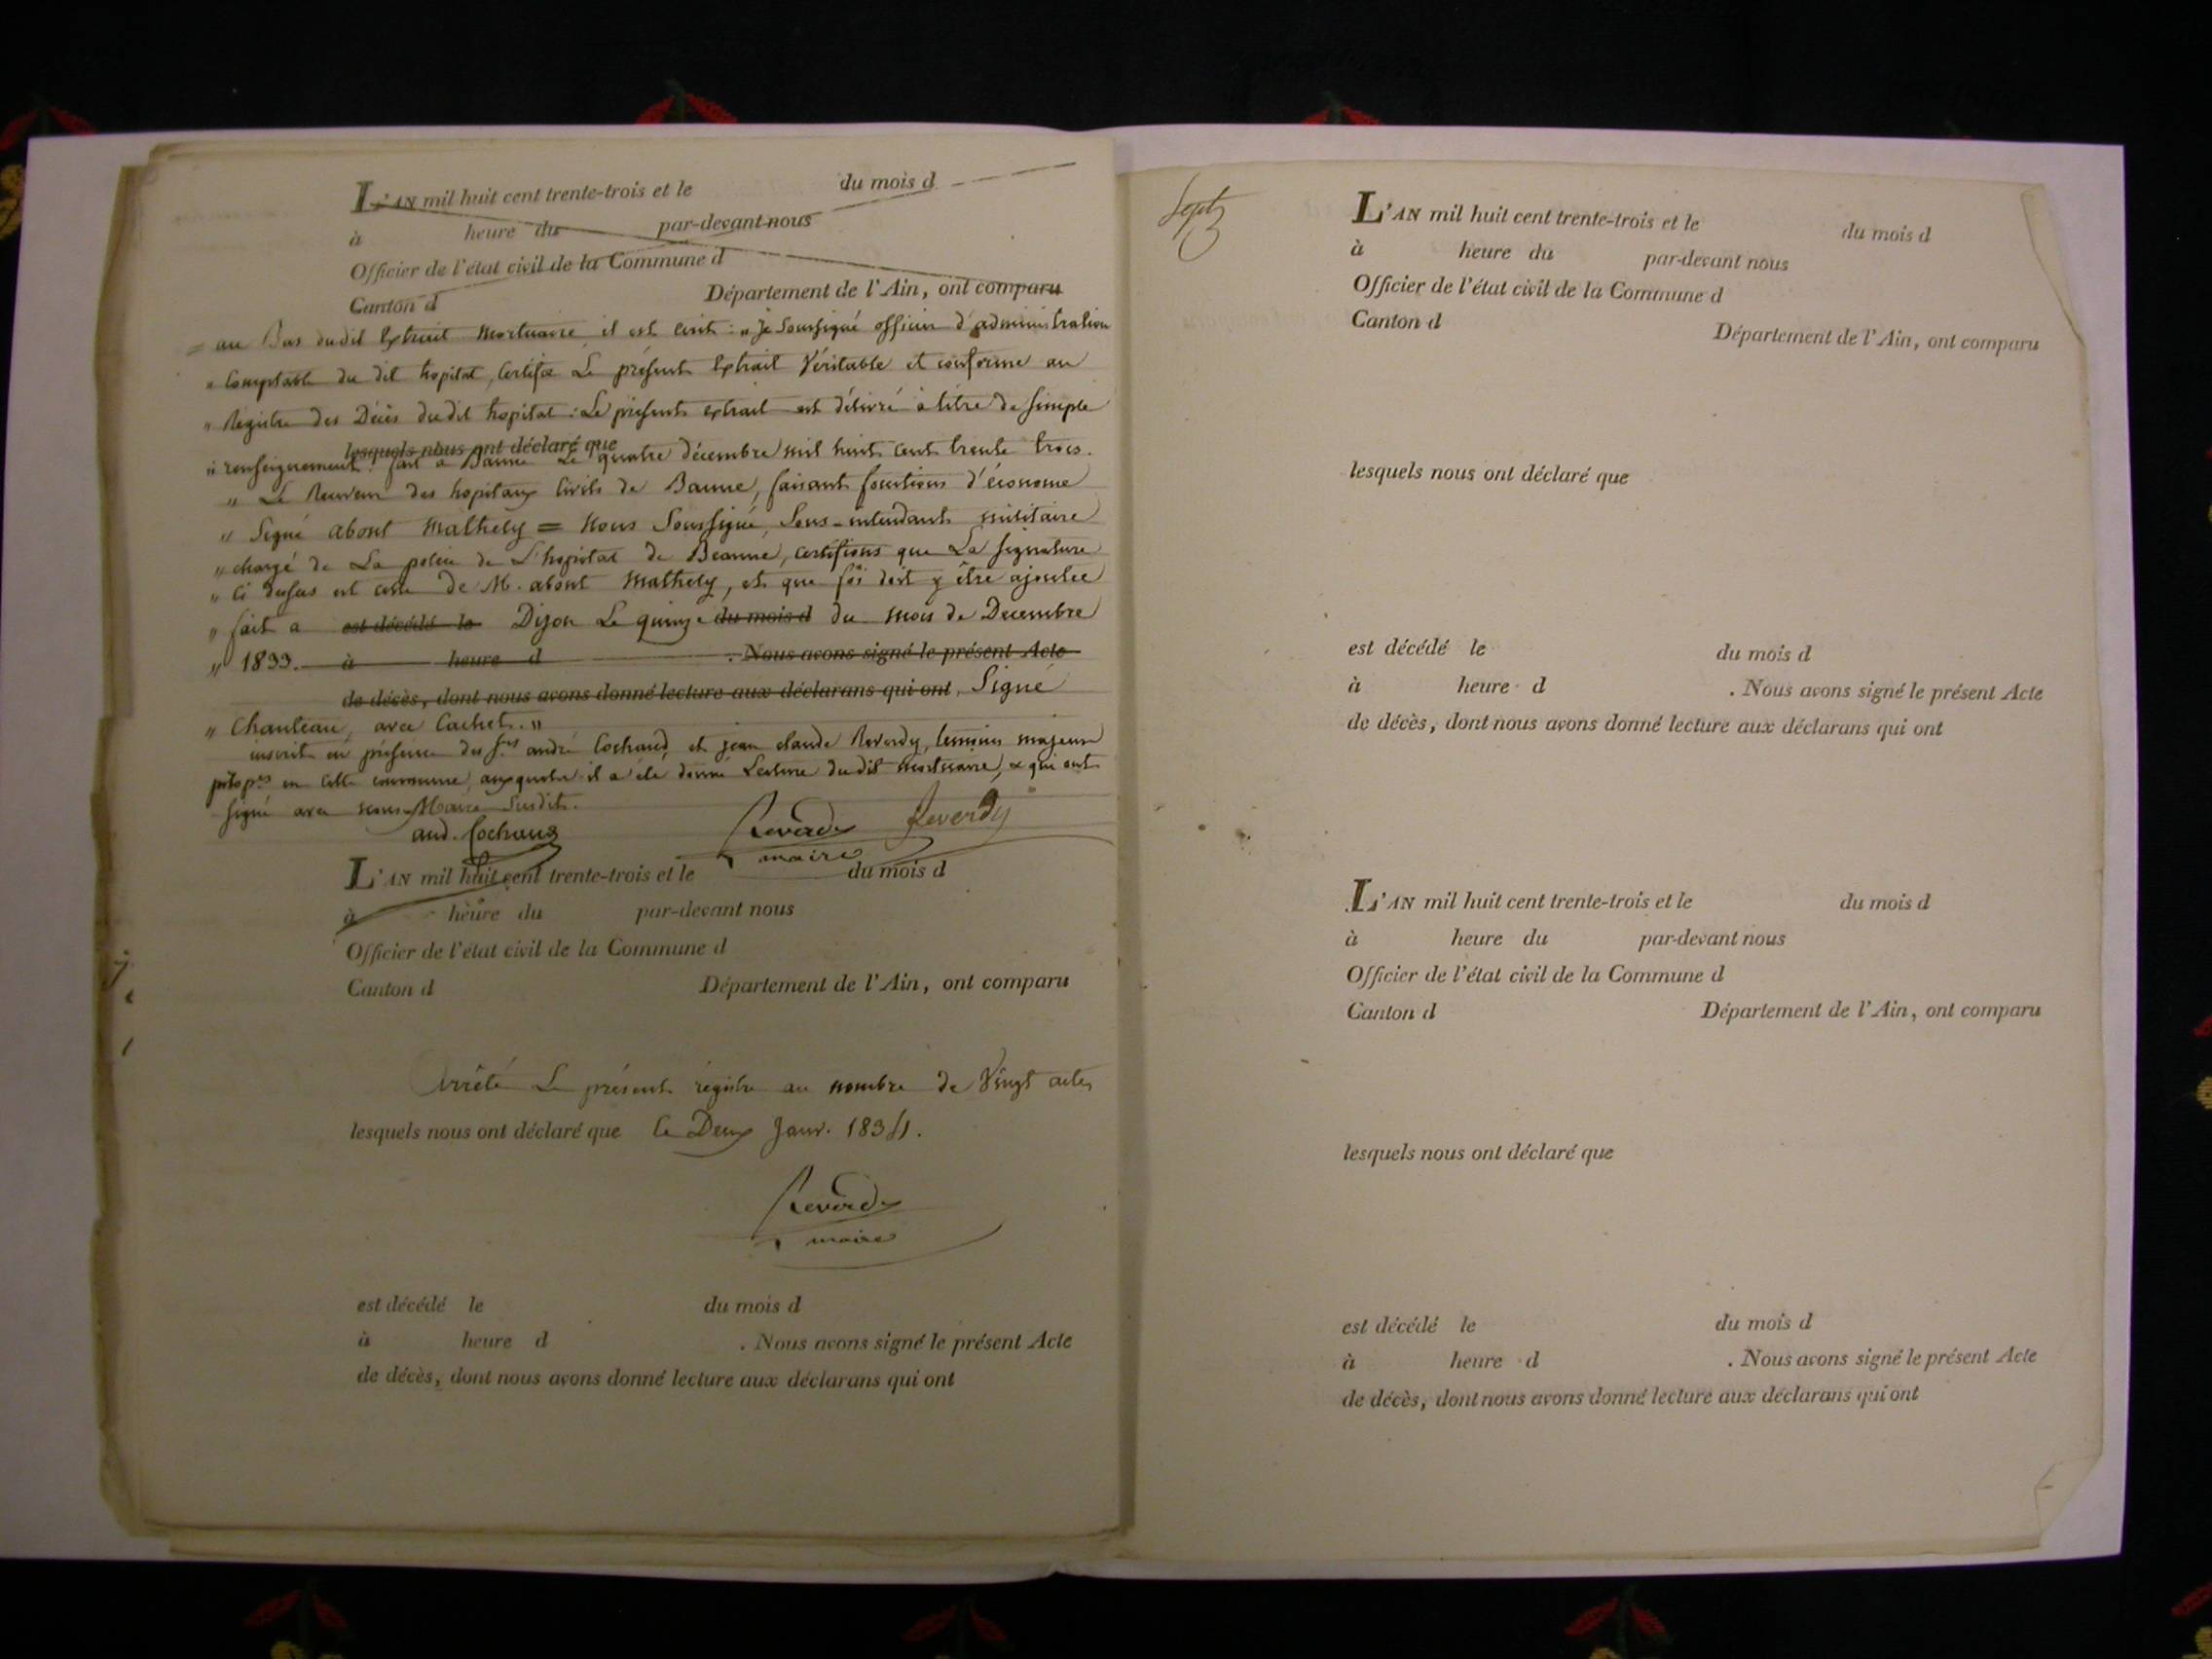 L'AN mil huit cent trente-trois et le du mois d
à heure du par-devant nous
Officier de l'état civil de la Commune d
Canton d Département de l'Ain, ont comparu
= au Bas dudit Extrait mortuaire il est écrit : „ Je Soussigné officier d'administration
„ Comptable du dit hopital, Certifie Le présent Extrait Véritable et conforme au
„ Registre des Décès dudit hopital : Le présent extrait est délivré à titre de simple
lesquels nous ont déclaré que
„ renseignement. fait à Baune Le quatre décembre mil huit cent trente trois.
„ Le Receveur des hopitaux Civils de Baune, faisant fonctions d'économe
„ Signé about Mathely = Nous Soussigné, Sous-intendant militaire
„ chargé de La police de L'hopital de Beaune, certifions que La signature
„ Ci dessus est celle de M. about Mathely, et que foi doit y être ajoutée
„ fait a est décédé le Dijon Le quinze du mois d du mois de Decembre
„ 1833. à heure d . Nous avons signé le présent Acte
de décès, dont nous avons donné lecture aux déclarans qui ont, Signé
„ Chanteau, avec Cachet. „
inscrit en présence des Srs andré Cochaud, et jean claude Reverdy, temoins majeurs
en cette commune, auxquels il a été donné Lecture dudit mortuaire, & qui ont
signé avec nous Maire Susdit.
and. Cochaud Reverdy Reverdy
maire
L'AN mil huit cent trente-trois et le du mois d
à heure du par-devant nous
Officier de l'état civil de la Commune d
Canton d Département de l'Ain, ont comparu
Arrêté Le présent régistre au nombre de Vingt actes
lesquels nous ont déclaré que le Deux Janv. 1834.
Reverdy
maire
est décédé le du mois d
à heure d . Nous avons signé le présent Acte
de décès, dont nous avons donné lecture aux déclarans qui ont
Sept
L'AN mil huit cent trente-trois et le du mois d
à heure du par-devant nous
Officier de l'état civil de la Commune d
Canton d Département de l'Ain, ont comparu
lesquels nous ont déclaré que
est décédé le du mois d
à heure d . Nous avons signé le présent Acte
de décès, dont nous avons donné lecture aux déclarans qui ont
L'AN mil huit cent trente-trois et le du mois d
à heure du par-devant nous
Officier de l'état civil de la Commune d
Canton d Département de l'Ain, ont comparu
lesquels nous ont déclaré que
est décédé le du mois d
à heure d . Nous avons signé le présent Acte
de décès, dont nous avons donné lecture aux déclarans qui ont